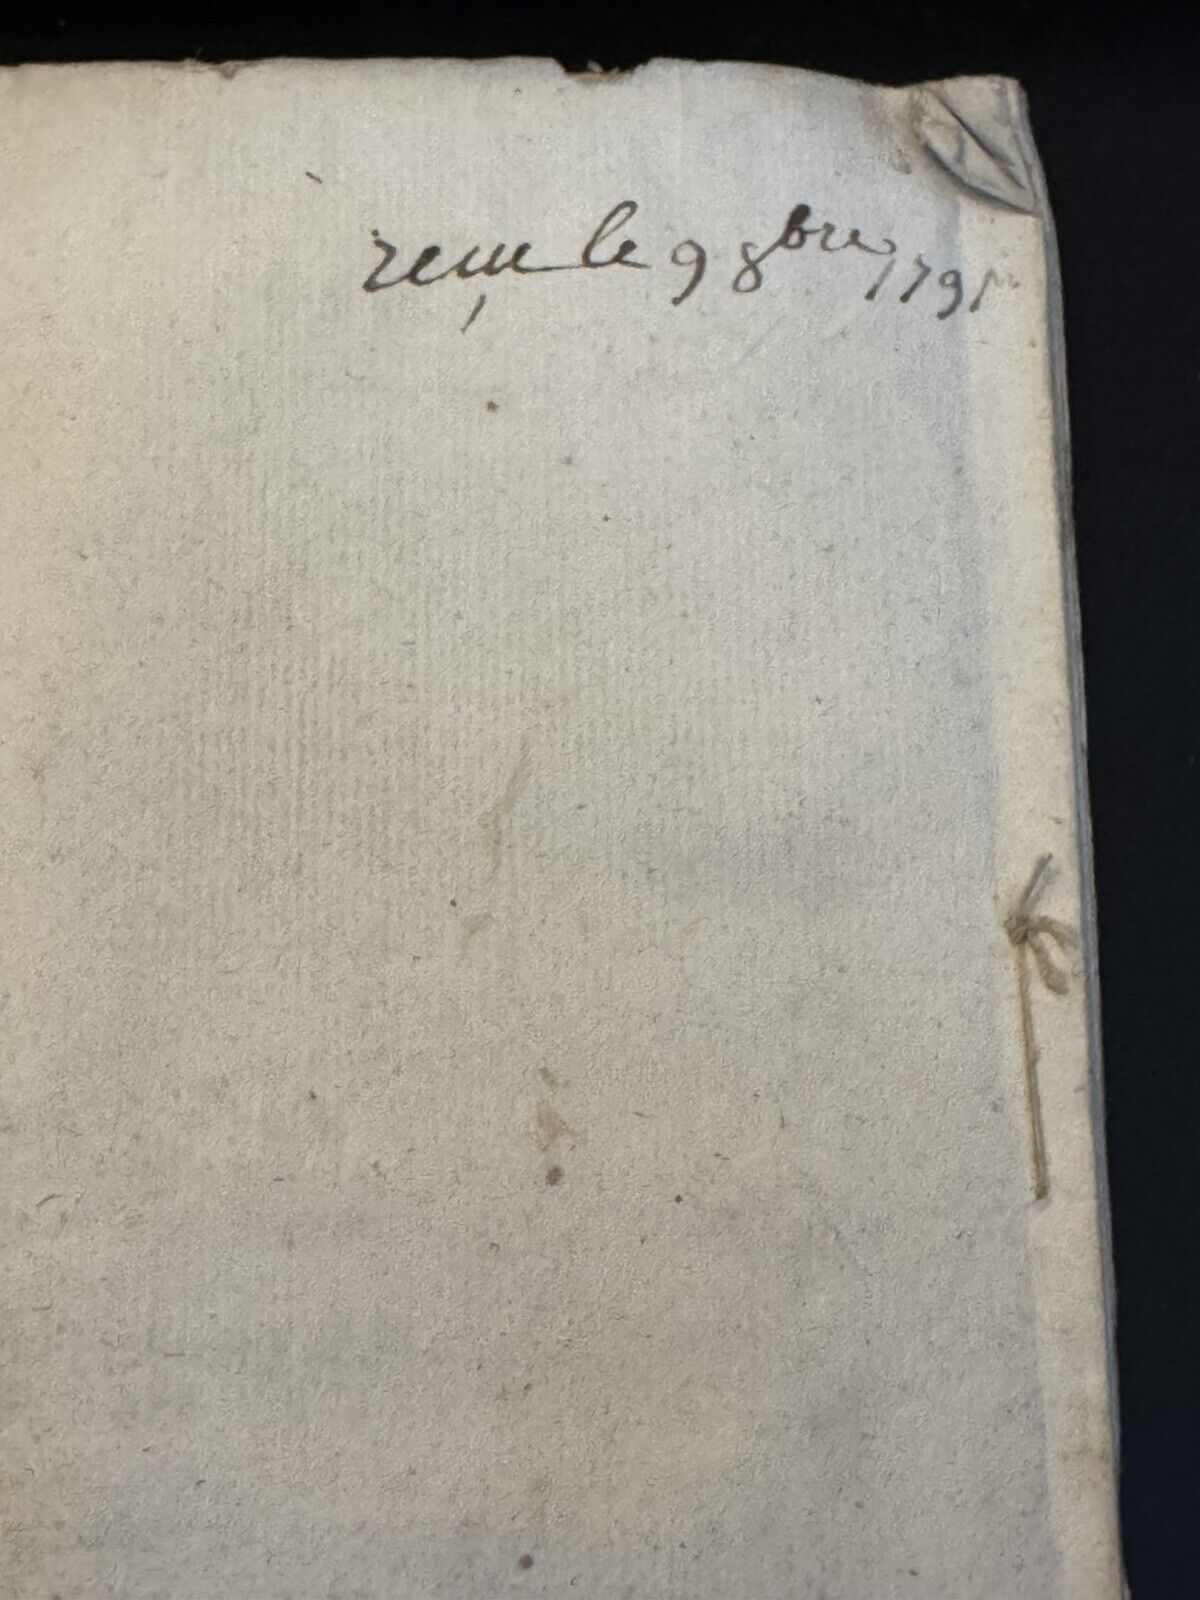 reçu le 9 8bre 1791